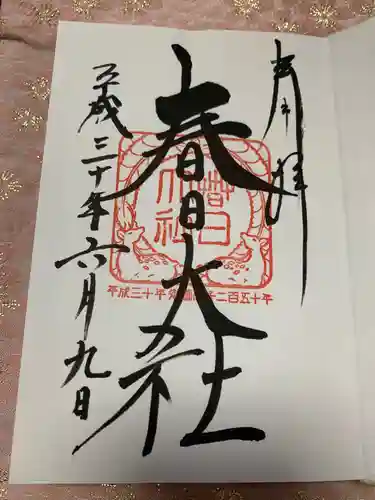 奉拝
春日大社
春日
大社
平成三十年 御創建千二百五十年
平成三十年六月九日